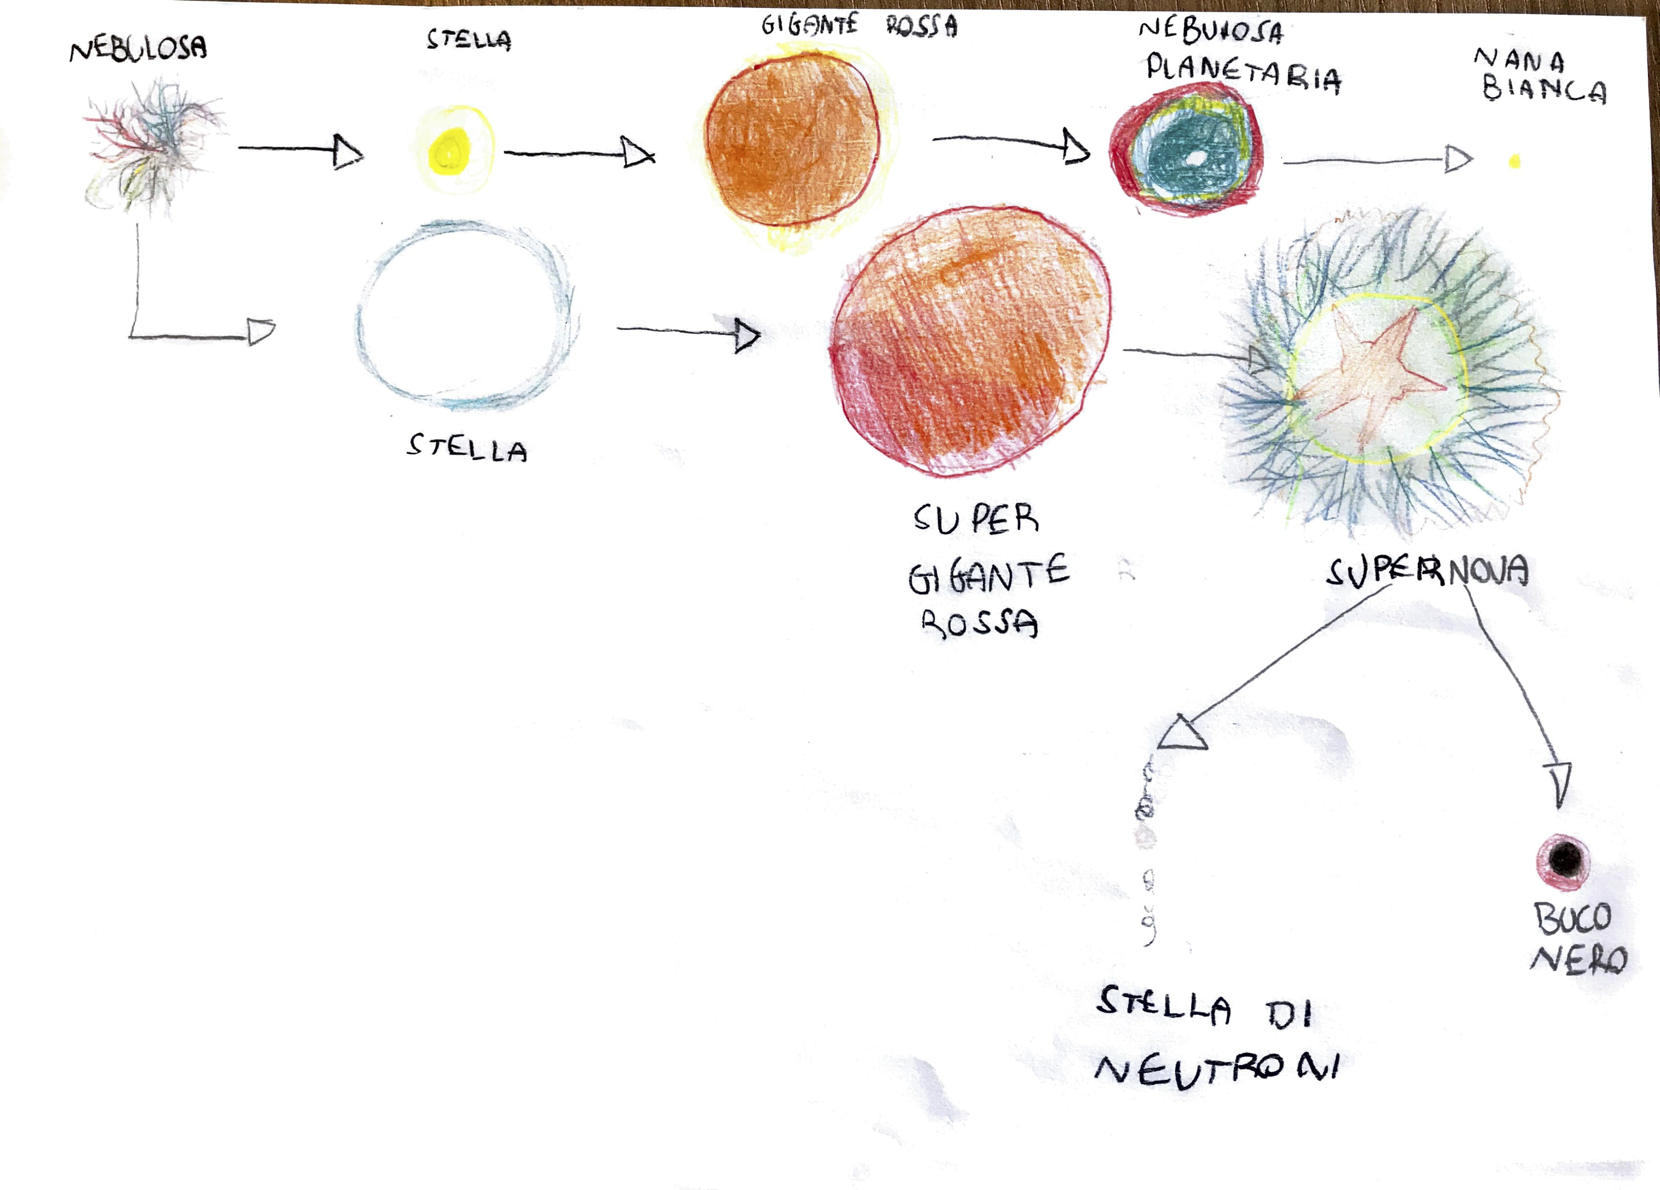 NEBULOSA
STELLA
GIGANTE ROSSA
NEBULOSA
PLANETARIA
NANA
BIANCA
STELLA
SUPER
GIGANTE
ROSSA
SUPERNOVA
BUCO
NERO
STELLA DI
NEUTRONI